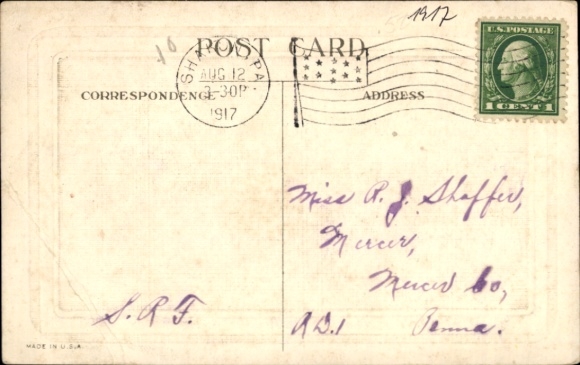 1917
10
POST CARD
U.S. POSTAGE
1 CENT 1
SHARON, PA.
AUG. 12
3-30P
1917
CORRESPONDENCE
ADDRESS
Miss R. J. Shaffer,
Mercer,
Mercer Co,
R.D.1 Penna.
S.R.F.
MADE IN U.S.A.